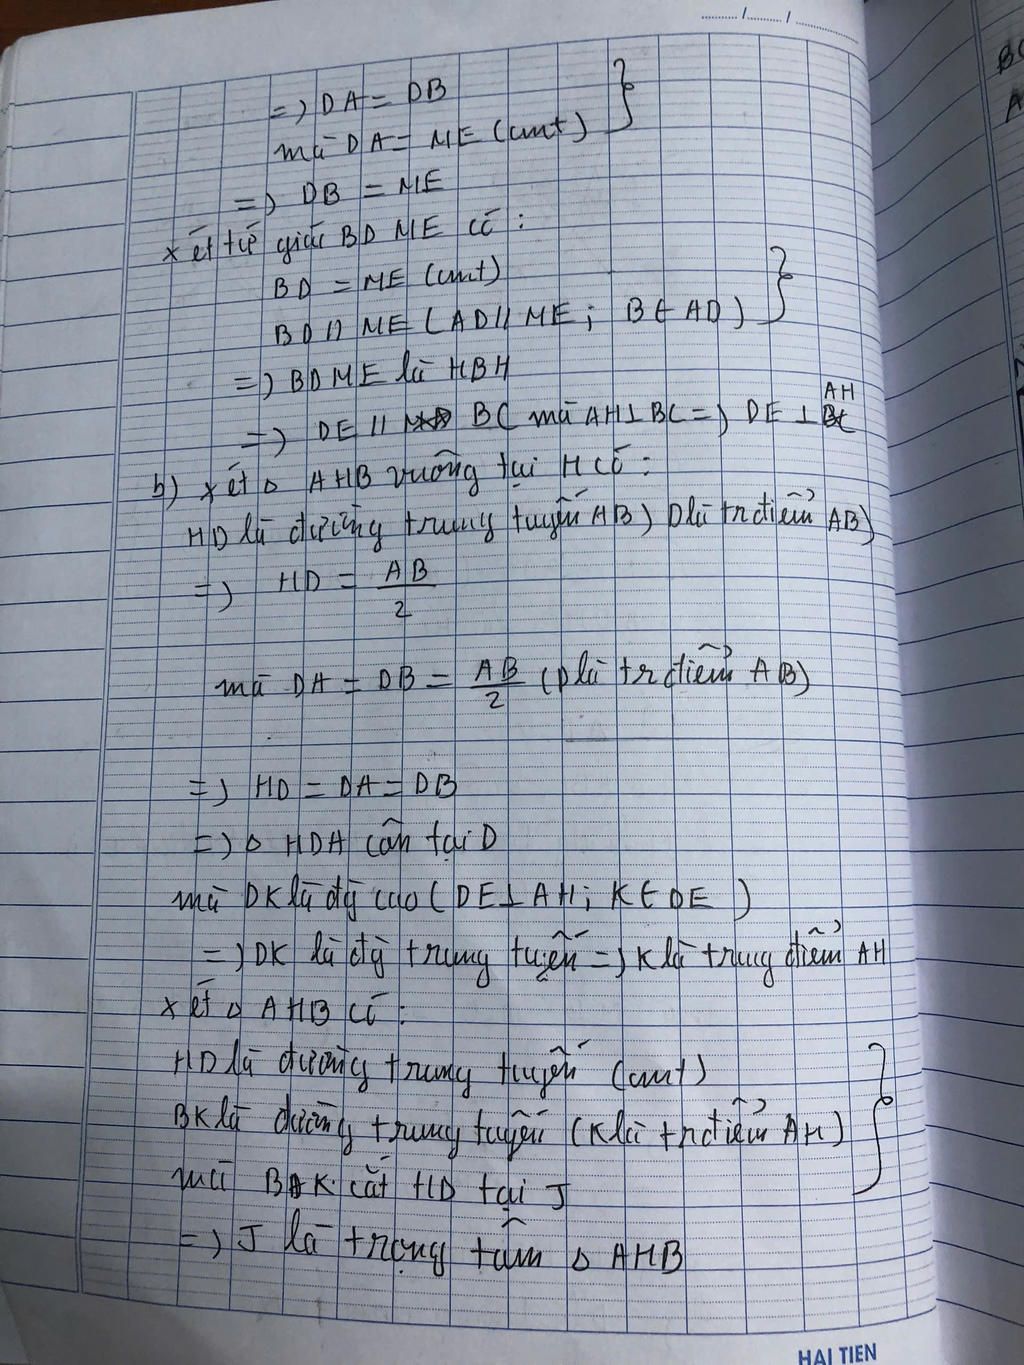 ....../....../......
=) DA = DB
mà DA = ME (cmt)
=) DB = ME
xét tứ giác BDME có :
BD = ME (cmt)
BD // ME ( AD // ME ; B ∈ AD )
=) BDME là HBH
AH
=) DE // BC mà AH ⊥ BC =) DE ⊥
b) xét Δ AHB vuông tại H có :
HD là đường trung tuyến AB) D là tr điểm AB)
=) HD = AB/2
mà DA = DB = AB/2 (D là tr điểm AB)
=) HD = DA = DB
=) Δ HDA cân tại D
mà DK là đg cao ( DE ⊥ AH ; K ∈ DE )
=) DK là đg trung tuyến =) K là trung điểm AH
xét Δ AHB có :
HD là đường trung tuyến (cmt)
BK là đường trung tuyến (K là tr điểm AH)
mà BK cắt HD tại J
=) J là trọng tâm Δ AHB
HAI TIEN
BC
A